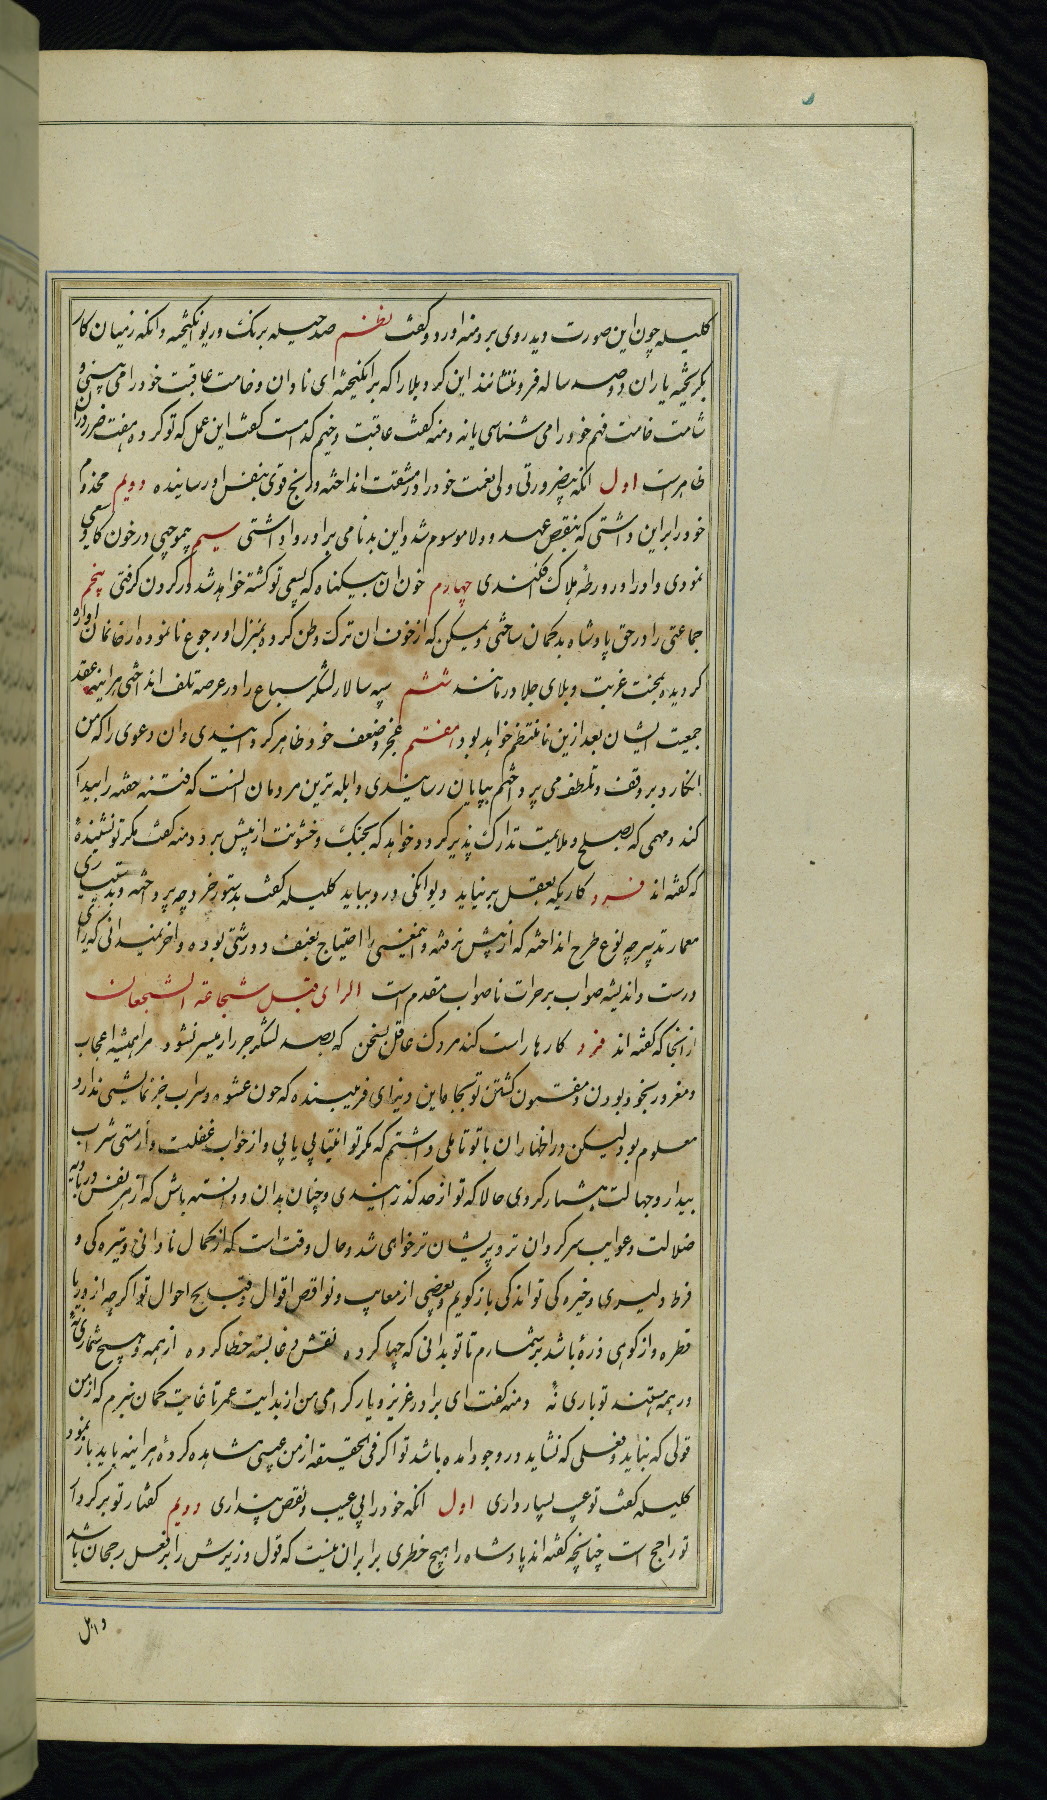 کلیله چون این صورت دید روی بر دمنه اورد و کفت نظم صد حیله برنک و ریو انکیخته وانکه ز میان کار
بکریخته یاران دو صد ساله فرو ننشانند این کرد بلا را که برانکیخته ای نادان وخامت عاقبت خود را می بینی و
شامت خاتمت فهم خود را می شناسی یا نه دمنه کفت عاقبت وخیم کدامست کفت این عمل که تو کرده هفت ضرر دران
ظاهر است اول انکه بیضرورتی ولی نعمت خود را در مشقت انداخته و رنج قوی بنفس او رسانیده دویم مخدوم
خود را برین داشتی که بنقض عهد و ولا موسوم شد و این بدنامی بر او روا داشتی سیم بی موجبی در خون کاو سعی
نمودی و او را در ورطهٔ هلاک افکندی چهارم خون ان بیکناه که بسعی تو کشته خواهد شد در کردن کرفتی پنجم
جماعتی را در حق پادشاه بدکمان ساختی و یمکن که از خوف ان ترک وطن کرده بمنزل او رجوع نانموده از خانمان اواره
کردیده بمحنت غربت و بلای جلا درمانند ششم سپه سالار لشکر سباع را در عرصه تلف انداختی هراینه عقد
جمعیت ایشان بعد ازین نامنتظم خواهد بود هفتم عجز و ضعف خود ظاهر کردانیدی وان دعوی را که من
انکار د بر وقف و تلطف می پردازم بپایان رسانیدی و ابله ترین مردمان انست که فتنه خفته را بیدار
کند و مهمی که بصلح و ملایمت تدارک پذیر کردد خواهد که بجنک و خشونت از پیش برد دمنه کفت مکر تو نشنیدهٔ
که کفته اند فرد کاریکه بعقل بر نیاید دیوانکی درو بباید کلیله کفت بدستور خرد چه پرداخته و بدستیاری
معمار تدبیر چه نوع طرح انداخته که از پیش نرفته و بعنف و درشتی احتیاج بوده و اخر نمیدانی که رای
درست و اندیشه صواب بر جرات ناصواب مقدم است الرای قبل شجاعة الشجعان
از انجا که کفته اند فرد کارها راست کند مرد عاقل بسخن که بصد لشکر جرار میسر نشود مرا همیشه اعجاب
و مغرور بخود بودن و مفتون کشتن تو بجاه این دنیای فریبنده که چون عشوه سراب جز نمایشی ندارد
معلوم بود لیکن در اظهار ان با تو تاملی داشتم که مکر تو انتباهی یابی و از خواب غفلت و از مستی شراب
بیدار و جهالت هشیار کردی حالا که تو از حد کذرانیدی و چنان بدان و دانسته باش که از هر نفس در بادیه
ضلالت و غوایب سرکردان تر و پریشان تر خواهی شد و حال وقت است که از کمال نادانی و تیره کی و
فرط دلیری و خیره کی تو اندکی باز کویم و بعضی از معایب و نواقص اقوال و قبایح احوال تو اکر چه از دریا
قطره و از کوهی ذرهٔ باشد بر شمارم تا تو بدانی که چها کرده نقش دغا بسته خطا کرده از همه و هیچ شماری نهٔ
در همه هستند تو باری نهٔ دمنه کفت ای برادر عزیز و یار کرامی من از بدایت عمر تا غایت کمان نبرم که از من
قولی که نباید و فعلی که نشاید در وجود امده باشد تو اکر فی الحقیقه از من عیبی مشاهده کردهٔ هراینه باید باز نمود
کلیله کفت تو عیب بسیار داری اول انکه خود را بی عیب و نقص پنداری دویم کفتار تو بر کردار
تو راجح است چنانچه کفته اند پادشاه را هیچ خطری برابر ان نیست که قول وزیرش را بر فعل رجحان باشد
و اهل